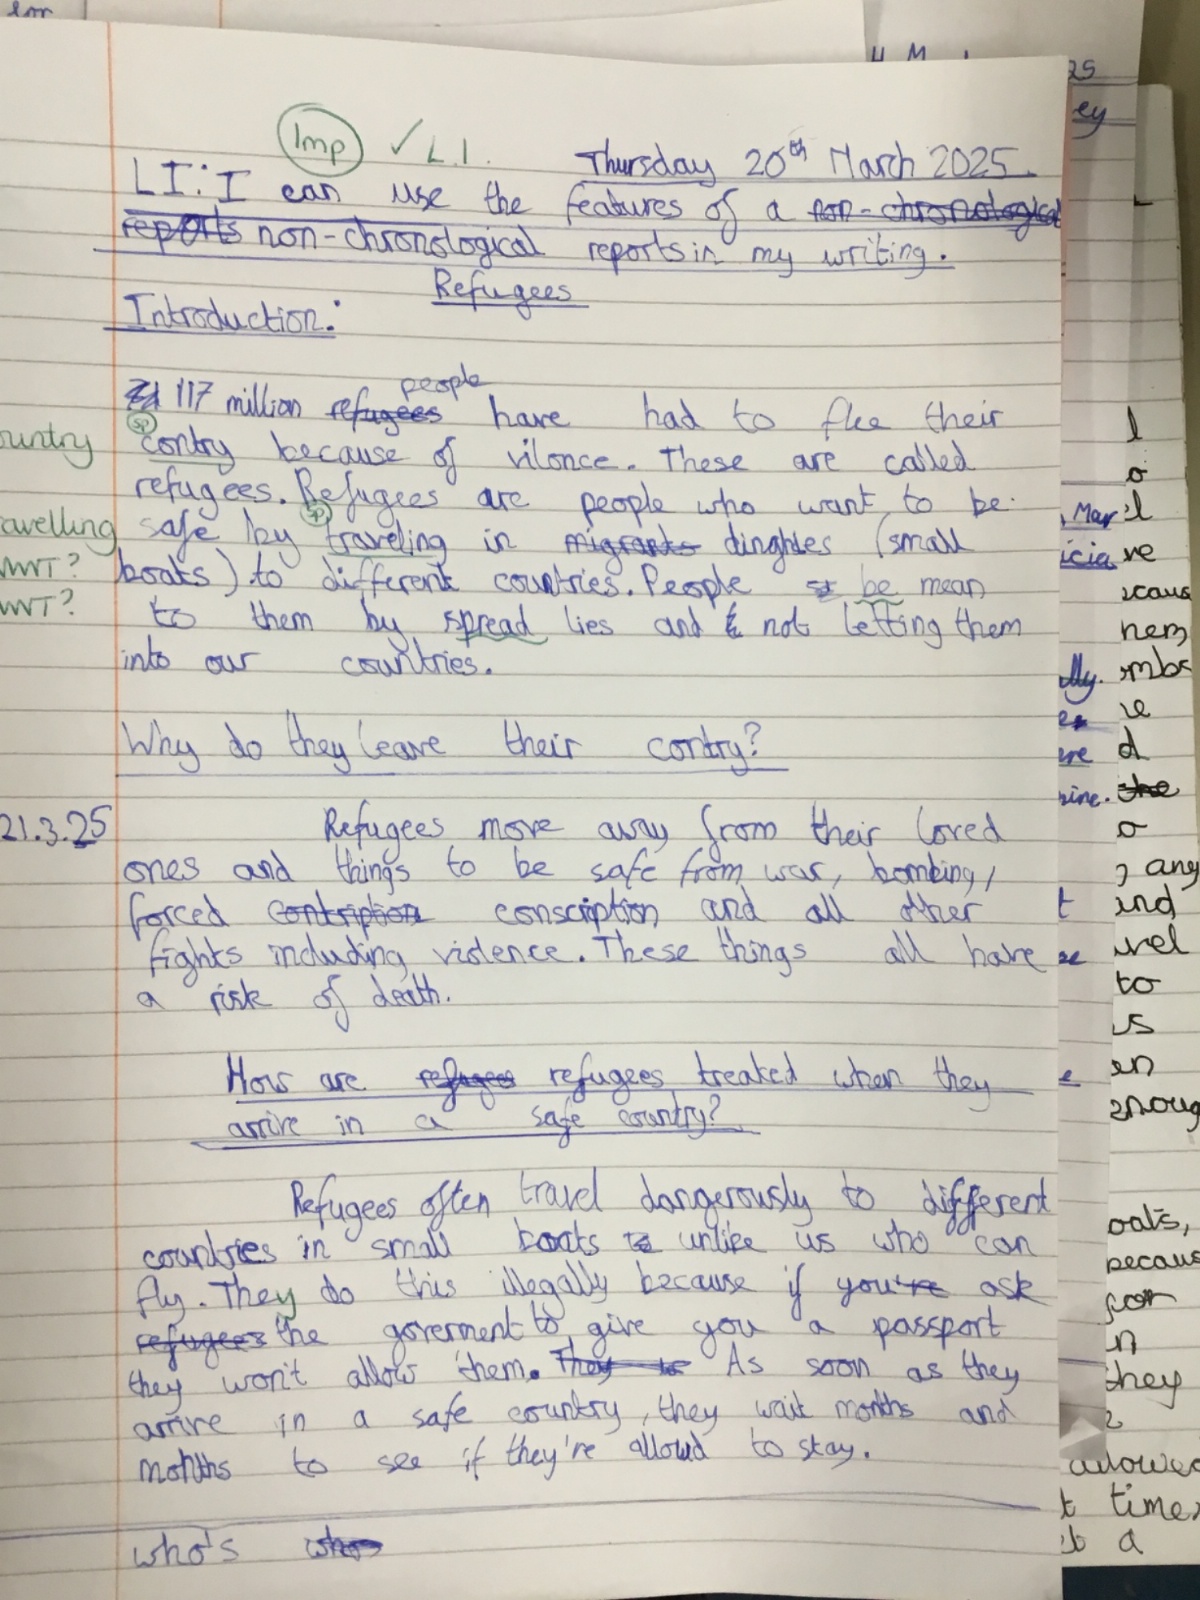 Imp ✓ L.I.
Thursday 20th March 2025.
LI: I can use the features of a non-chronological
reports non-chronological reports in my writing.
Refugees
Introduction:
people
117 million refugees have had to flee their
sp
ountry
contry because of vilonce. These are called
refugees. Refugees are people who want to be
sp
avelling
safe by traveling in migrants dinghies (small
MWT?
boats) to different countries. People be mean
MWT?
to them by spread lies and not letting them
into our countries.
Why do they leave their contry?
21.3.25
Refugees move away from their loved
ones and things to be safe from war, bombing,
forced contription conscription and all other
fights including violence. These things all have
a risk of death.
How are refugees refugees treated when they
arrive in a safe country?
Refugees often travel dangerously to different
countries in small boats unlike us who can
fly. They do this illegally because if you're ask
refugees the goverment to give you a passport
they won't allow them. They As soon as they
arrive in a safe country, they wait months and
months to see if they're allowd to stay.
who's who